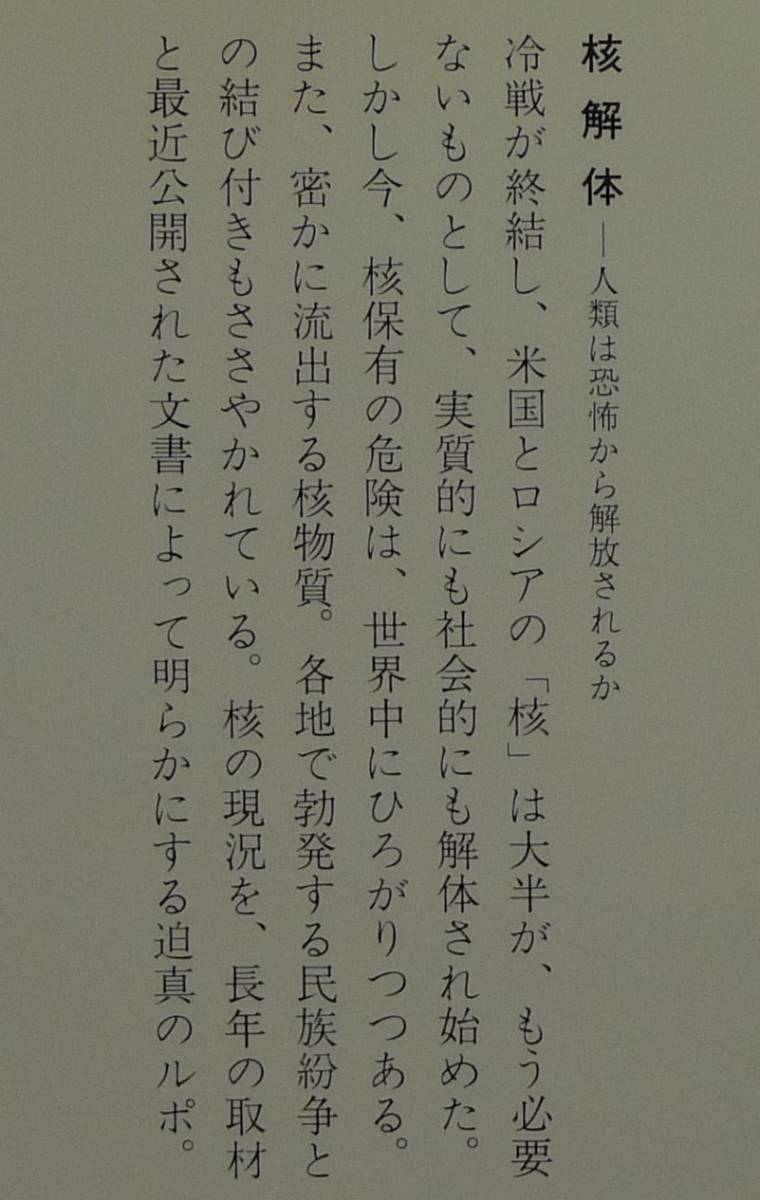 核解体―人類は恐怖から解放されるか
冷戦が終結し、米国とロシアの「核」は大半が、もう必要
ないものとして、実質的にも社会的にも解体され始めた。
しかし今、核保有の危険は、世界中にひろがりつつある。
また、密かに流出する核物質。各地で勃発する民族紛争と
の結び付きもささやかれている。核の現況を、長年の取材
と最近公開された文書によって明らかにする迫真のルポ。